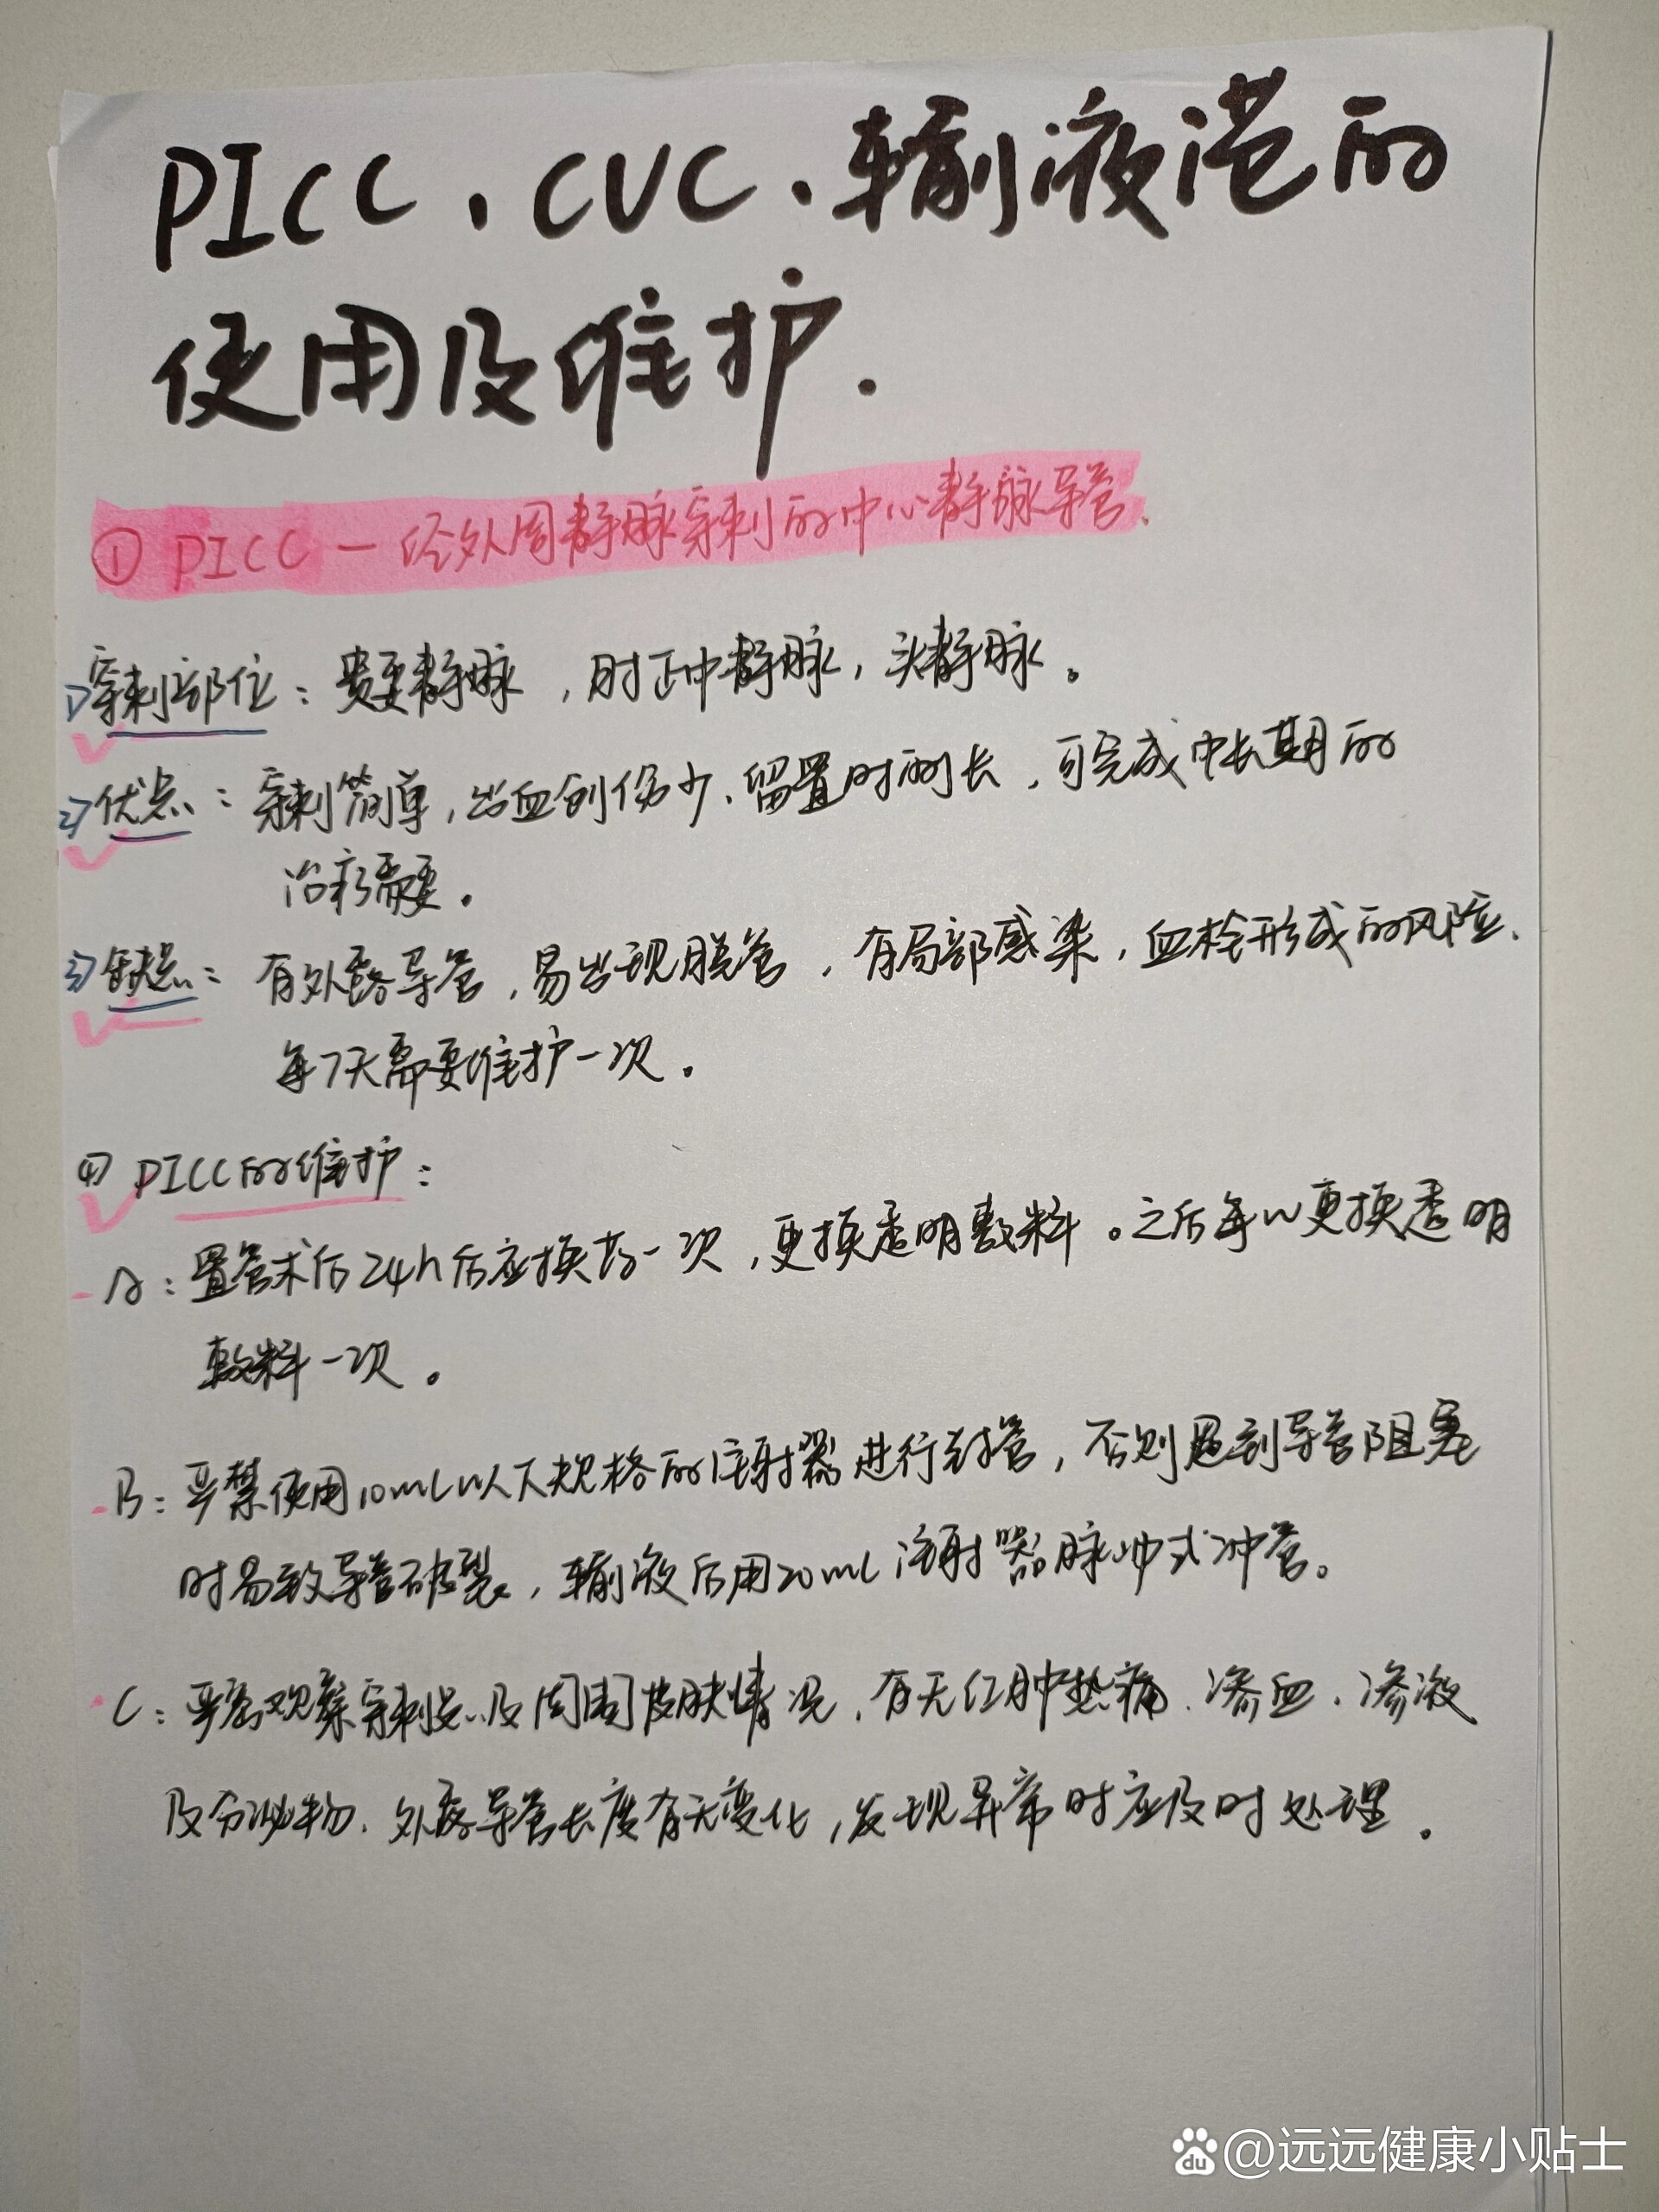 PICC、CVC、输液港的
使用及维护.
① PICC — 经外周静脉穿刺的中心静脉导管.
1) 穿刺部位：贵要静脉，肘正中静脉，头静脉。
2) 优点：穿刺简单，出血创伤少、留置时间长，可完成中长期的
治疗需要。
3) 缺点：有外露导管，易出现脱管，有局部感染，血栓形成的风险、
每7天需要维护一次。
4) PICC的维护：
A：置管术后24h后应换药一次，更换透明敷料。之后每w更换透明
敷料一次。
B：严禁使用10mL以下规格的注射器进行封管，否则遇到导管阻塞
时易致导管破裂，输液后用20mL注射器脉冲式冲管。
C：严密观察穿刺点及周围皮肤情况，有无红肿热痛、渗血、渗液
及分泌物、外露导管长度有无变化，发现异常时应及时处理。
du @远远健康小贴士